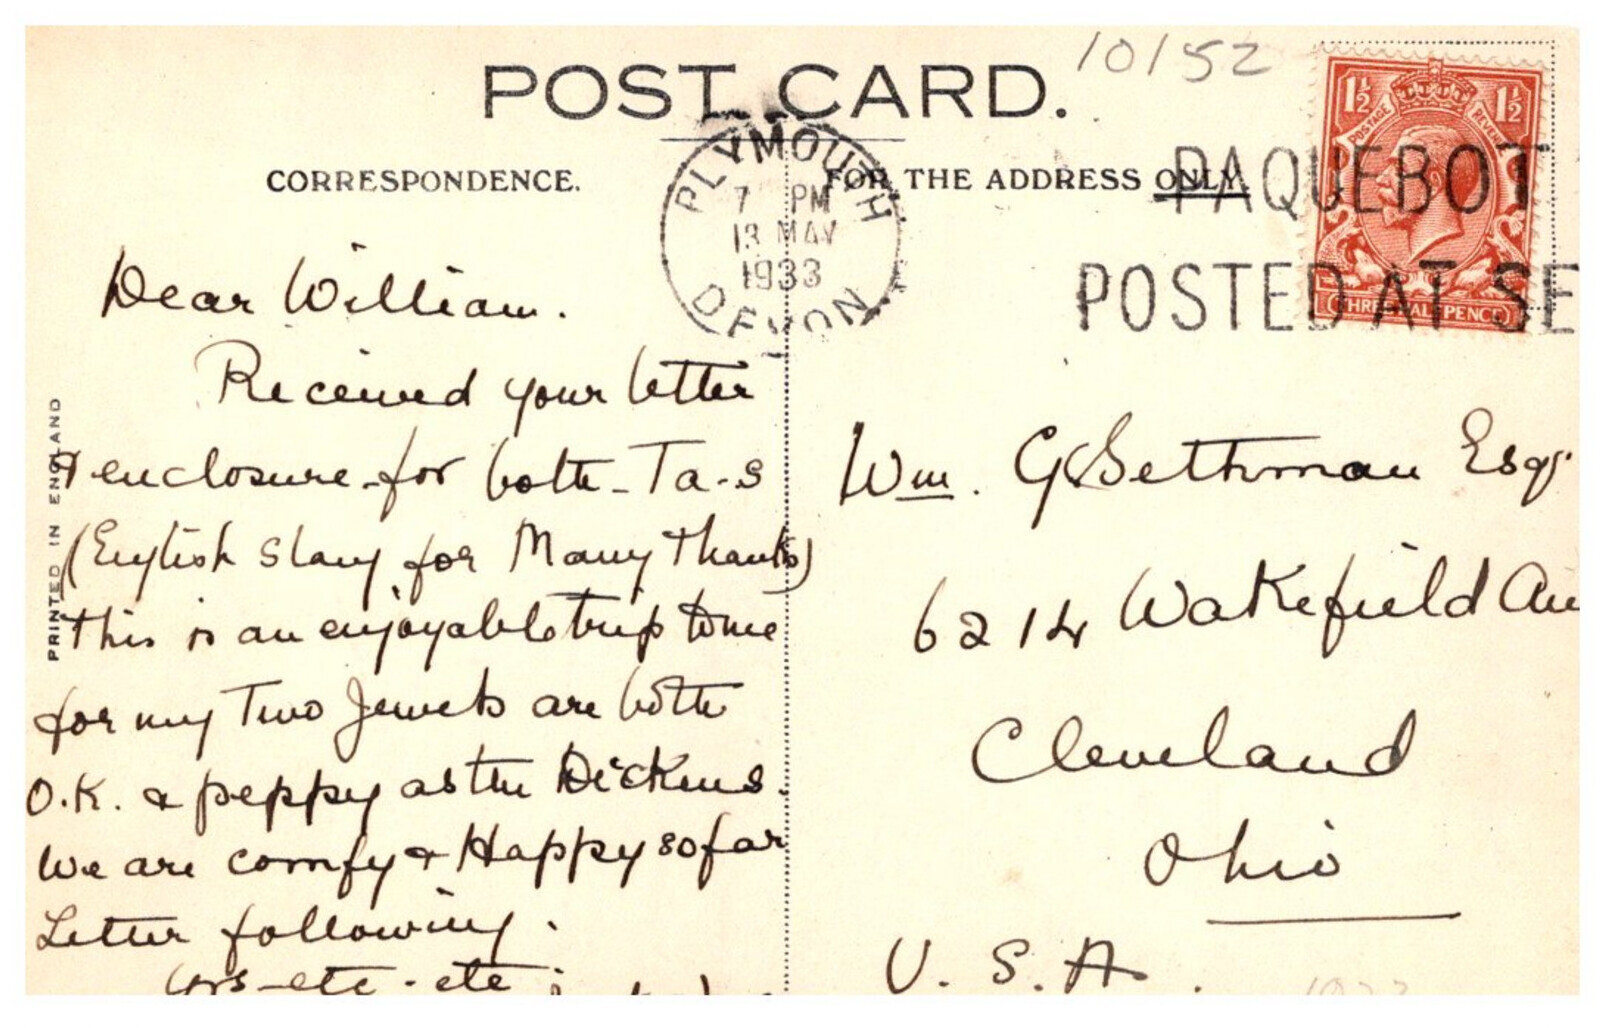 POST CARD.
10152
CORRESPONDENCE.
FOR THE ADDRESS ONLY.
PLYMOUTH
7 PM
13 MAY
1933
DEVON
PAQUEBOT
POSTED AT SE
1½ 1½
POSTAGE REVENUE
THREE HALF PENCE
PRINTED IN ENGLAND
Dear William.
Received your letter
& enclosure for both - Ta-s
(English slang for Many Thanks)
this is an enjoyable trip to me
for my Two Jewels are both
O.K. & peppy as the Dickens.
We are comfy & Happy so far
Letter following.
Yrs - etc - etc
Wm. G. Sethman Esq.
6214 Wakefield Av
Cleveland
Ohio
U. S. A.